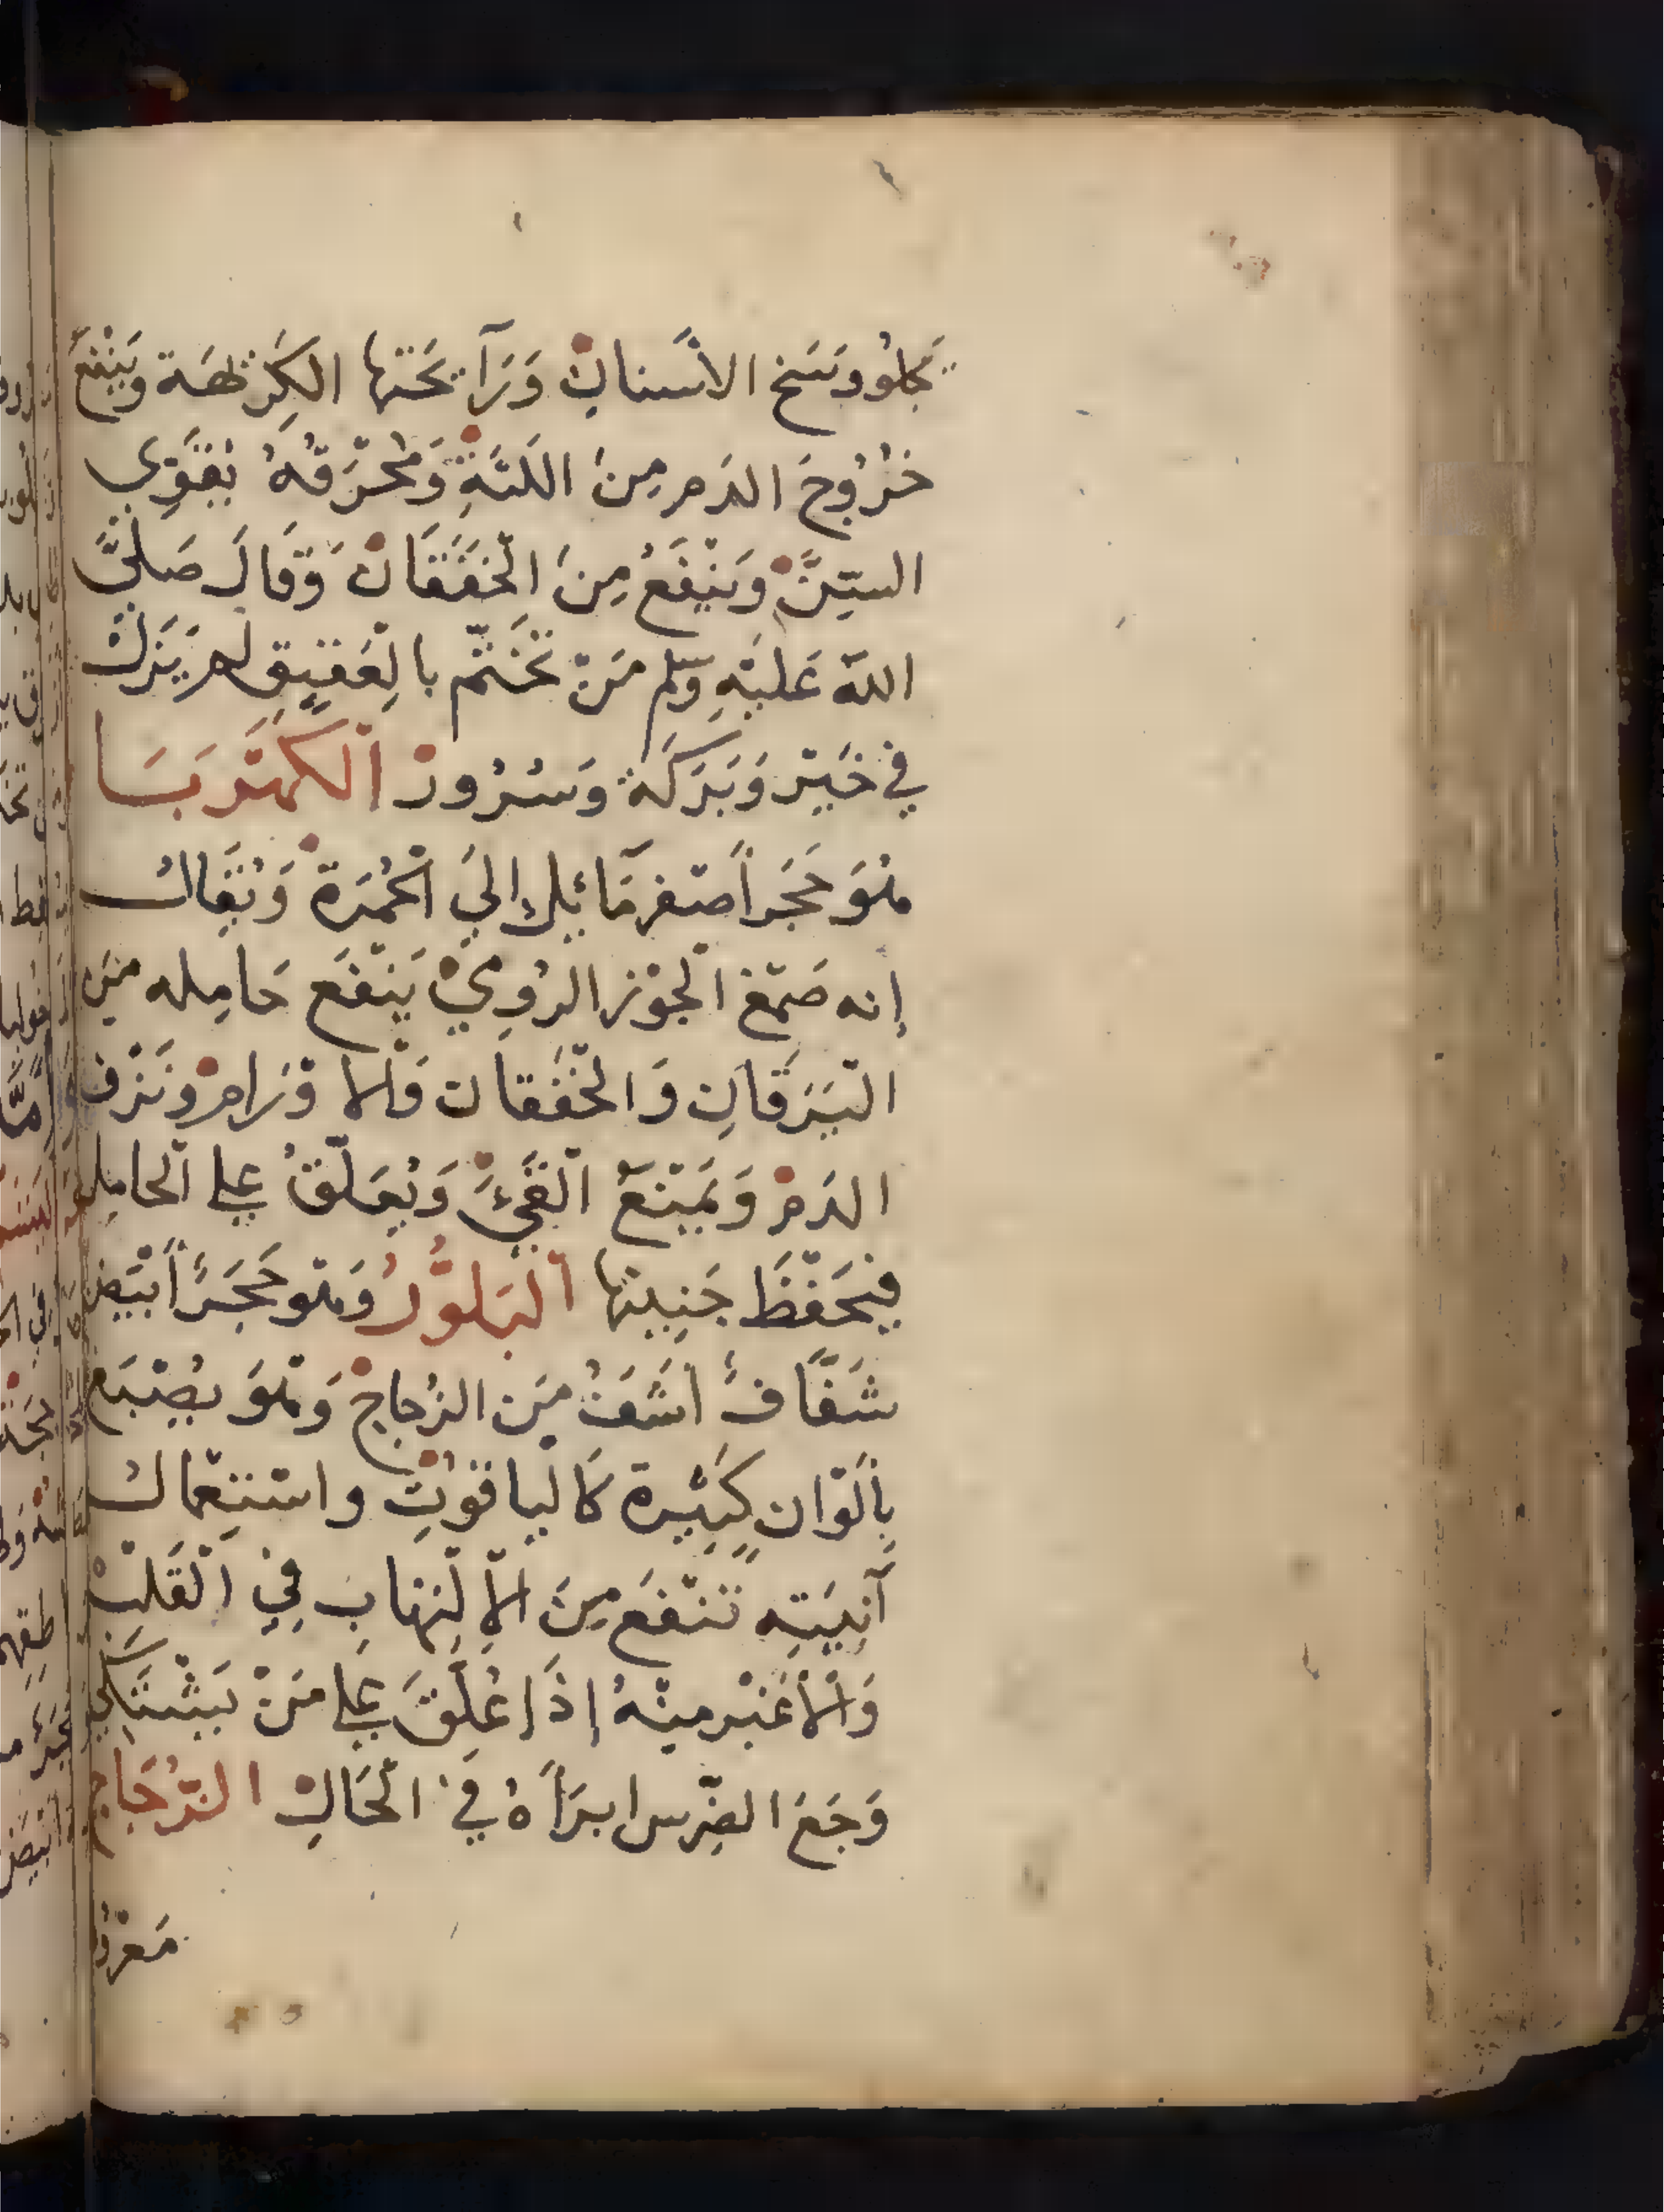 يَجلُو وَسَخ الاسَنانِ وَرَآيحَتها الكَرِيهَة وَيَنْفَع
خُرُوجَ الدَم مِنَ اللَثَةِ وَمُحْرَقَهُ يُقَوِّي
السِّنَّ وَيَنْفَعُ مِنَ الْخَفَقَانْ وَقَالَ صَلىَّ
اللّه عَلَيْهِ وسَلم مَنْ تَخَتّم بالِعَقيِقِ لم يَزَلْ
في خَيْرٍ وَبَرَكَة وَسُرُور الْكَهْرَبَا
هُوَ حَجَر اَصفر مَائِل اِلىَ الْحُمْرَة وَيُقَالُ
إنه صَمْغ الْجَوْز الرُومِيّ يَنْفَع حَامِله من
الْيَرَقَانِ وَالْخَفَقَان وَالاوْرَام وَنَزْف
الدَم وَيَمْنَعُ الْقَيءَّ وَيُعَلّقُ على الْحامِل
فيَحَفْظَ جَنِينها الْبَلوُّرُ وَهو حَجَرٌ اَبْيَض
شَفَّافٌ اَشَفُ مَن الزُجاجْ وَهْوَ يُصْبَغ
بِاَلْوَان كَثِيرة كَالْياقوُتِ واسْتِعْمالُ
آنِيَتِه تَنْفَع مِنَ الاِلْتِهَابِ فيِ الْقَلْبْ
وَالاَغْبَر مِنْهُ إذَا عُلّقَ عَلى مَنْ يَشْتَكي
وَجَعَ الضِّرس ابرَاَهُ فيَ الْحَالِ الزُّجَاج
مَعْرُو